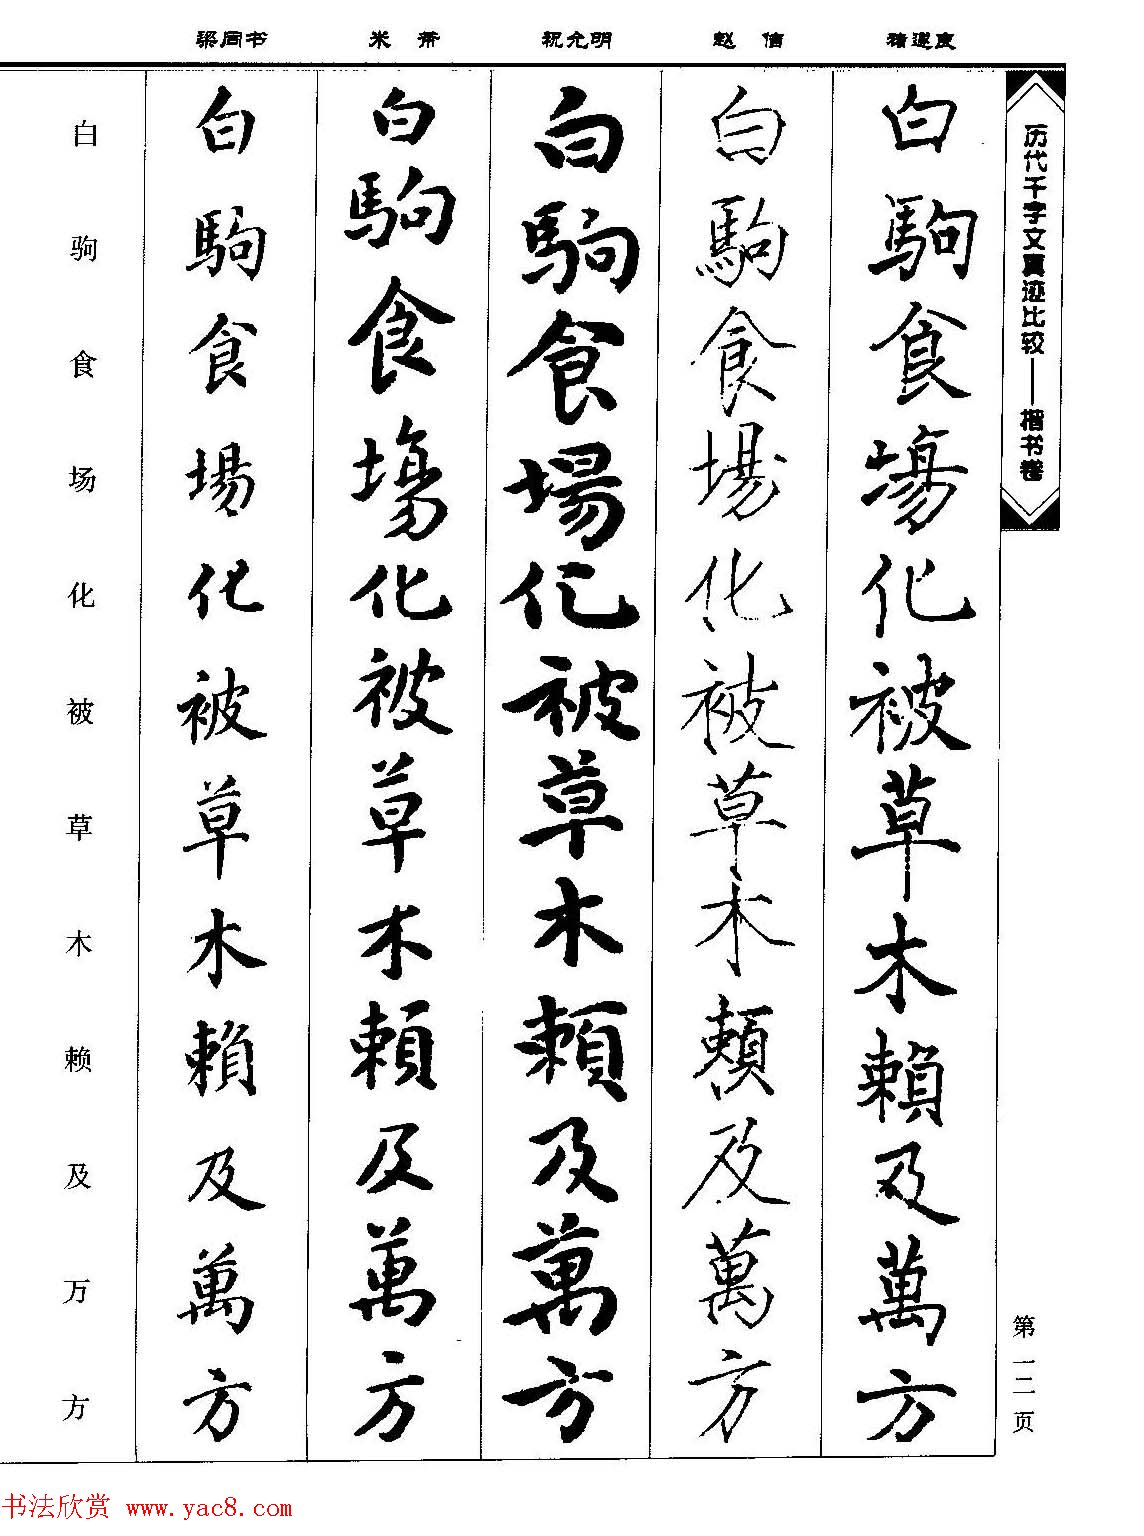 历代千字文真迹比较——楷书卷
第一二页
褚遂良
白駒食塲化被草木賴及萬方
赵佶
白駒食場化被草木頼及萬方
祝允明
白駒食場化被草木頼及萬方
米芾
白駒食塲化被草木頼及萬方
梁同书
白駒食場化被草木賴及萬方
白驹食场化被草木赖及万方
书法欣赏 www.yac8.com